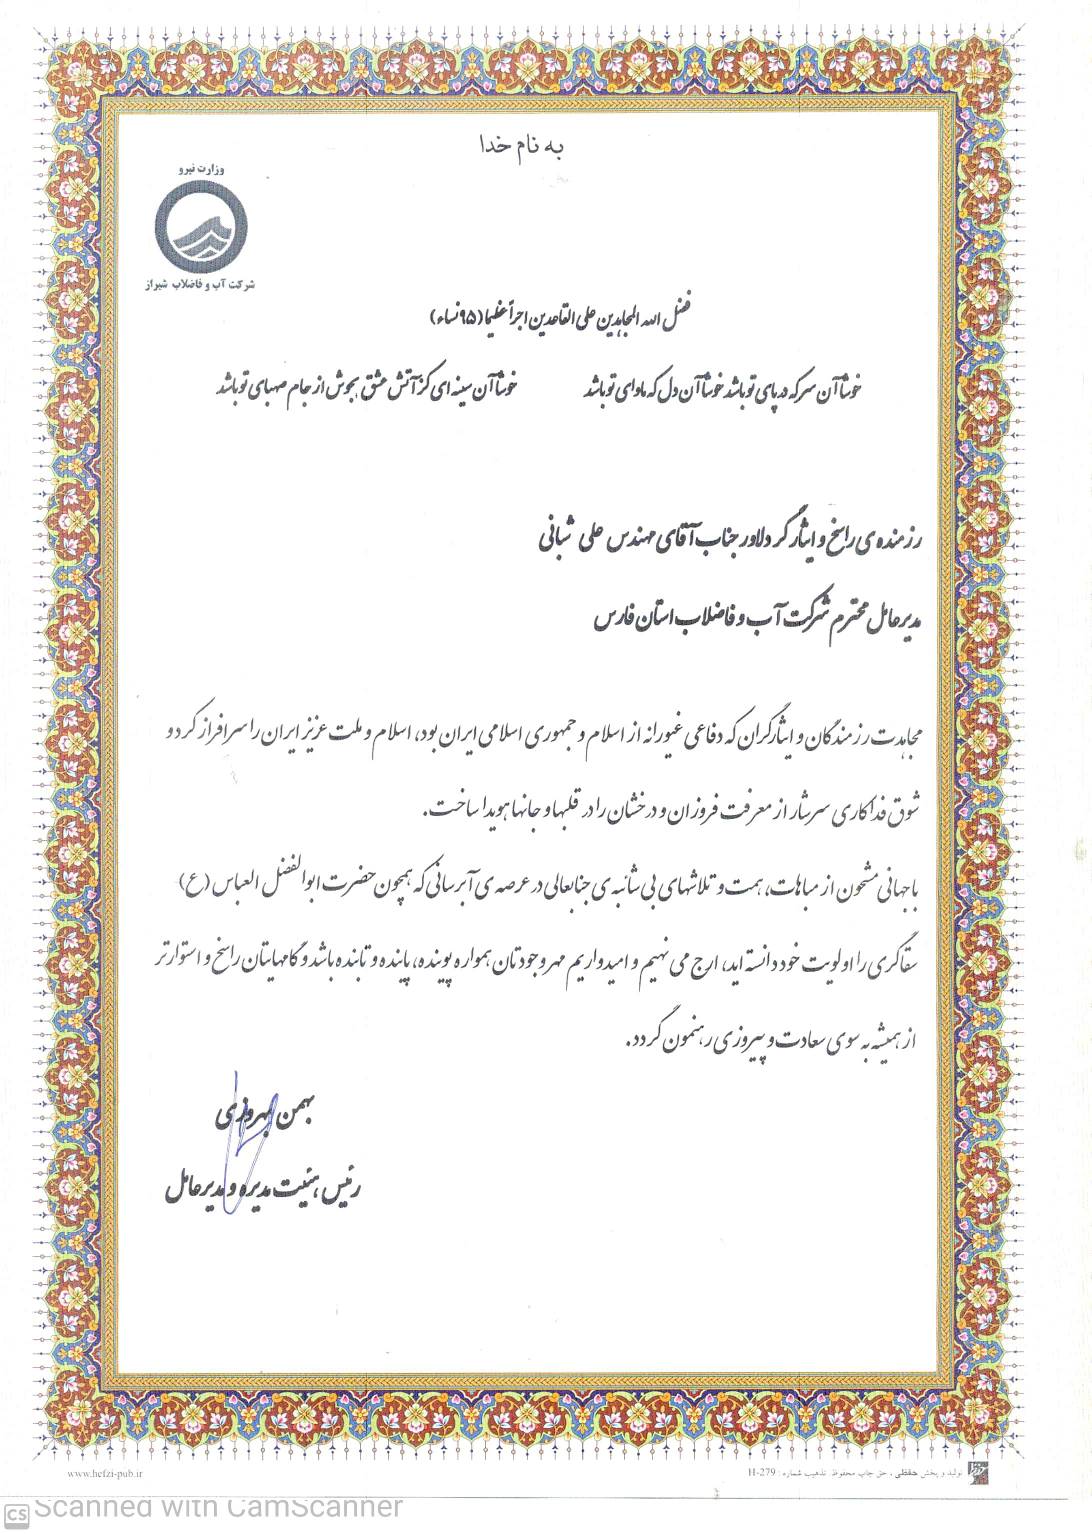 به نام خدا
وزارت نیرو
شرکت آب و فاضلاب شیراز
فضل الله المجاهدین علی القاعدین اجراً عظیما (۹۵ نساء)
خوشا آن سر که در پای تو باشد خوشا آن دل که ماوای تو باشد خوشا آن سینه ای کز آتش عشق بجوش از جام صهبای تو باشد
رزمنده ی راسخ و ایثارگر دلاور جناب آقای مهندس علی شبانی
مدیرعامل محترم شرکت آب و فاضلاب استان فارس
مجاهدت رزمندگان و ایثارگران که دفاعی غیورانه از اسلام و جمهوری اسلامی ایران بود، اسلام و ملت عزیز ایران را سرافراز کرد و
شوق فداکاری سرشار از معرفت فروزان و درخشان را در قلبها و جانها هویدا ساخت.
با جهانی مشحون از مباهات، همت و تلاشهای بی شائبه ی جنابعالی در عرصه ی آبرسانی که همچون حضرت ابوالفضل العباس (ع)
سقاگری را اولویت خود دانسته اید، ارج می نهیم و امیدواریم مهر وجودتان همواره پوینده، پاینده و تابنده باشد و گامهایتان راسخ و استوارتر
از همیشه به سوی سعادت و پیروزی رهنمون گردد.
بهمن بهروزی
رئیس هیئت مدیره و مدیرعامل
www.hefzi-pub.ir
تولید و پخش حفظی ، حق چاپ محفوظ. تذهیب شماره : H-279
CS Scanned with CamScanner